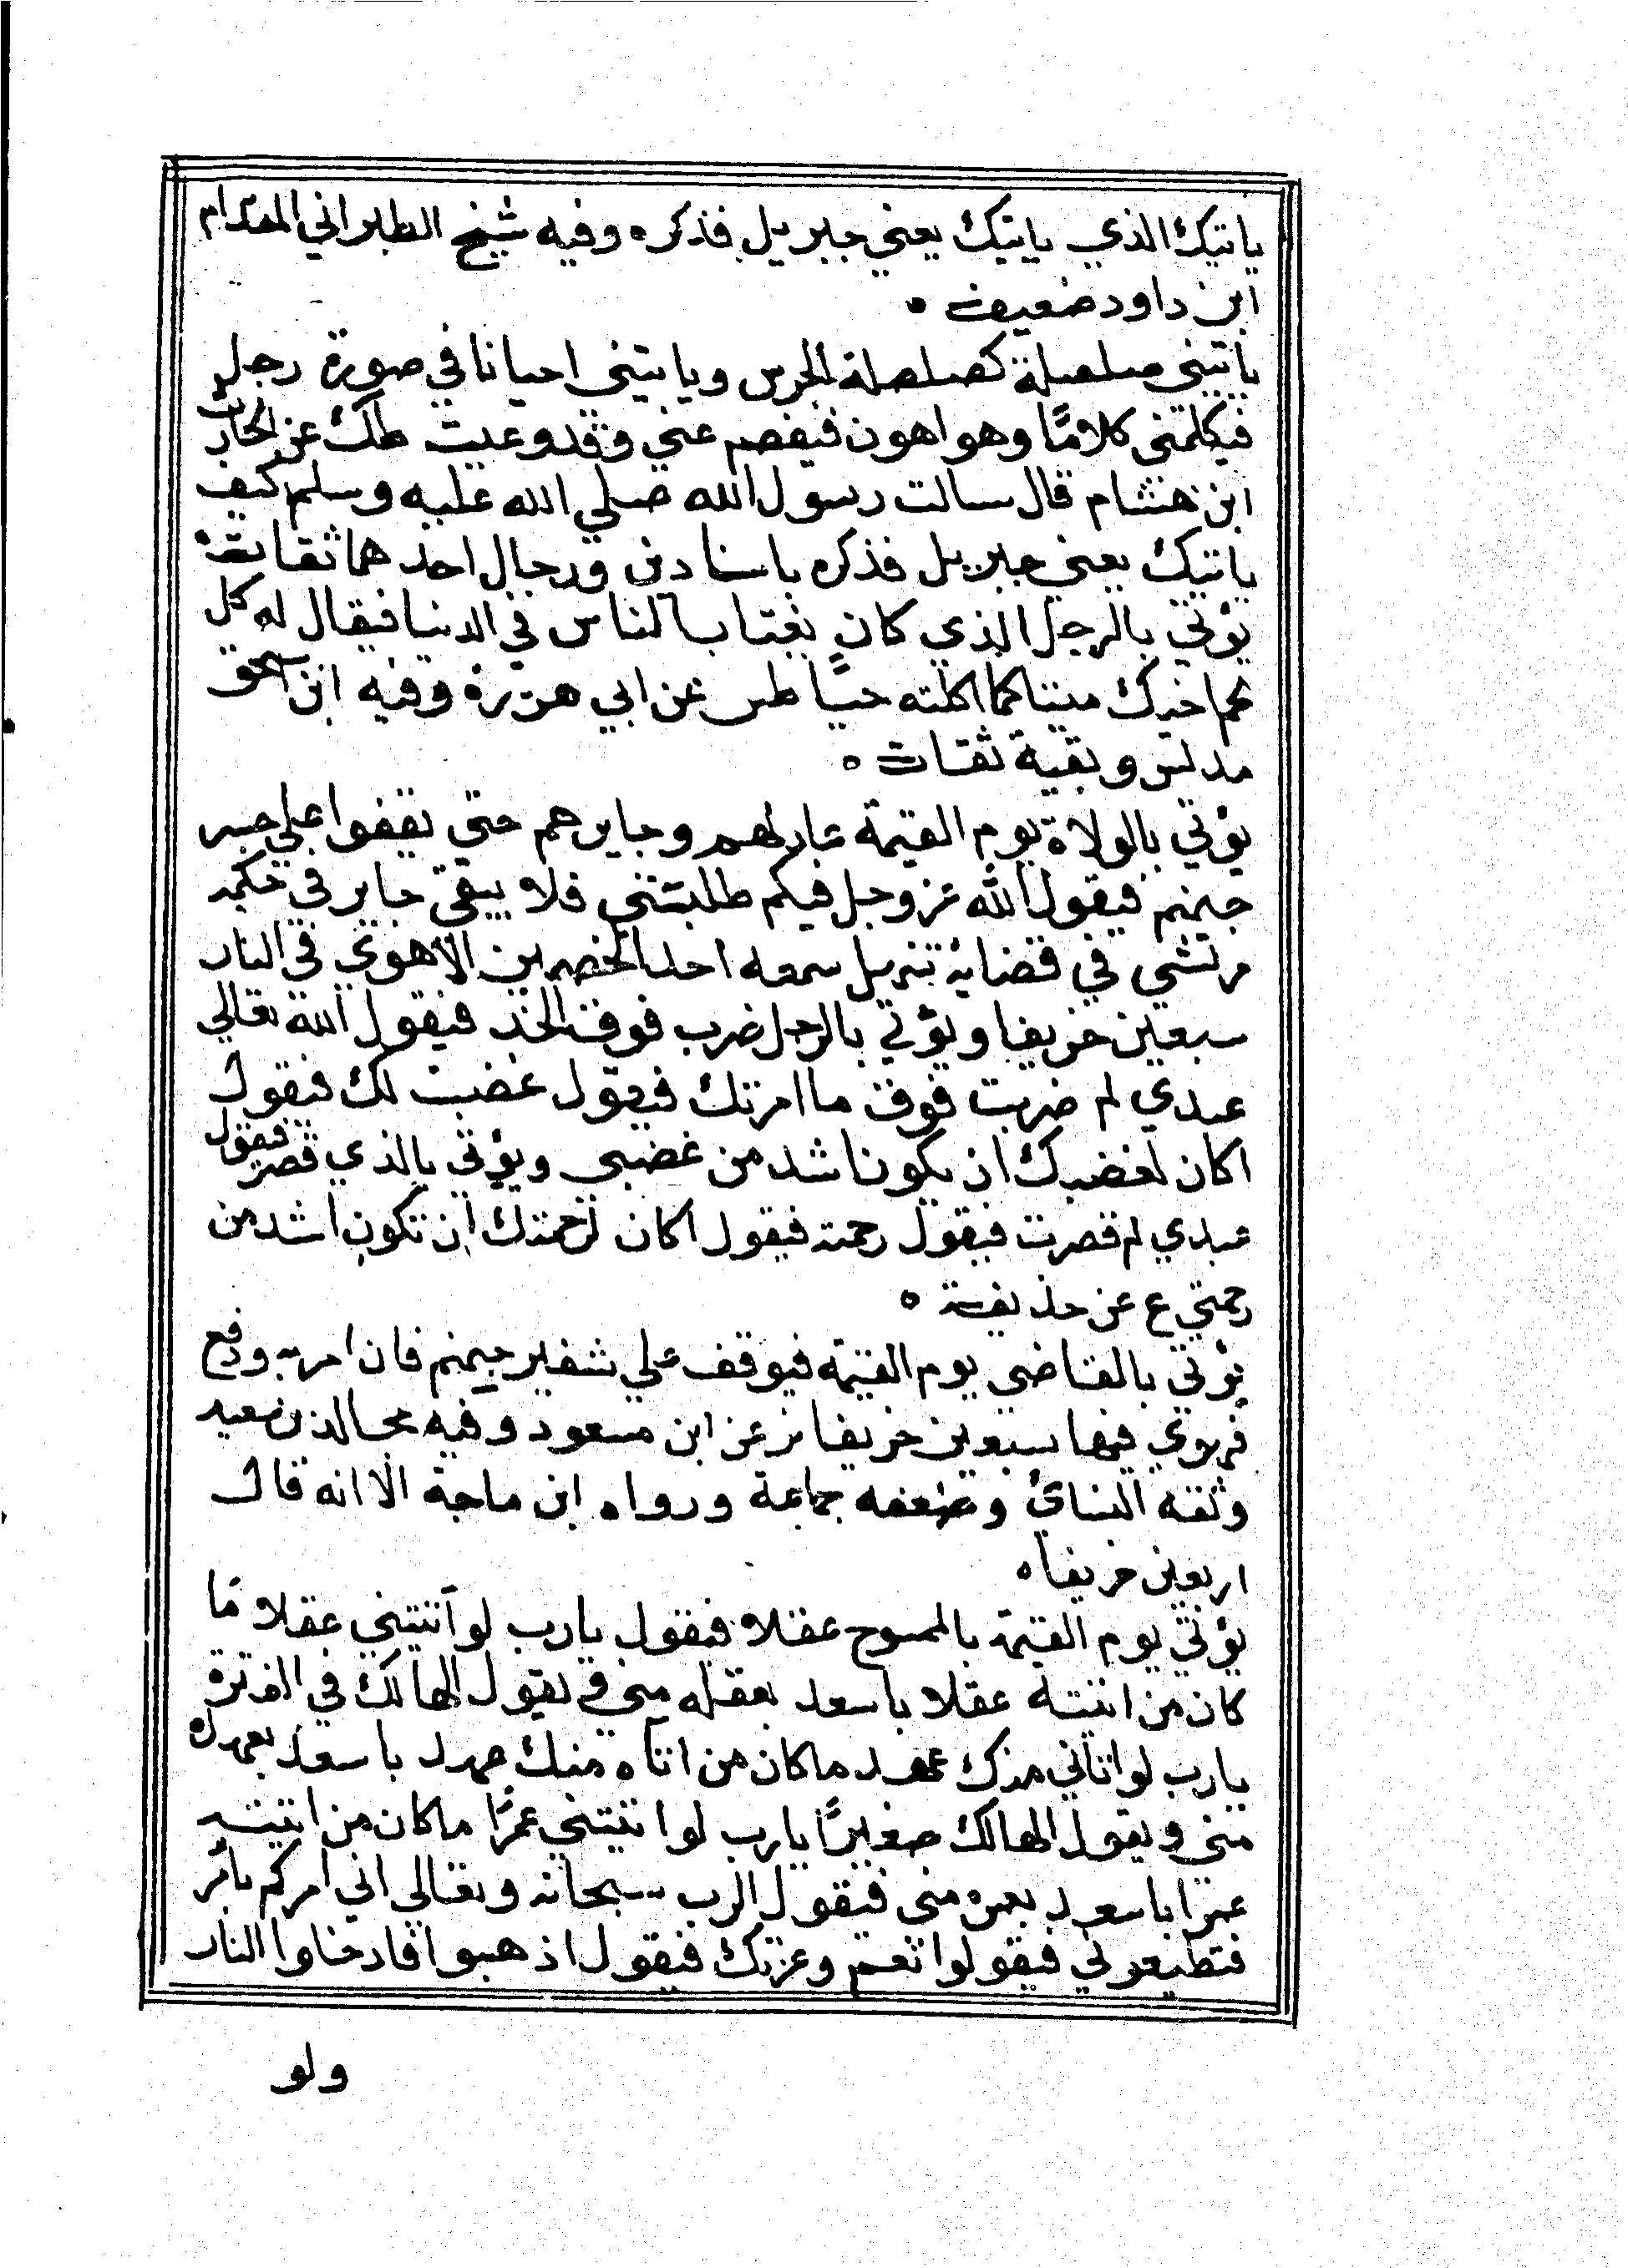 ياتيك الذي ياتيك يعني جبريل فذكره وفيه شيخ الطبراني المقدام
ابن داود ضعيف ه
ياتيني صلصلة كصلصلة الجرس وياتيني احيانا في صورة رجل
فيكلمني كلامًا وهو اهون فيفصم عني وقد وعيت طك عن الحارث
ابن هشام قال سالت رسول الله صلي الله عليه وسلم كيف
ياتيك يعني جبريل فذكره باسنادين ورجال احدهما ثقات ه
يؤتي بالرجل الذي كان يغتاب الناس في الدنيا فيقال له كل
لحم اخيك ميتا كما اكلته حيًا طس عن ابي هريرة وفيه ابن اسحق
مدلس وبقية ثقات ه
يؤتي بالولاة يوم القيمة عادلهم وجايرهم حتي يقفوا علي جسر
جهنم فيقول الله عز وجل فيكم طلبتني فلا يبقي جاير في حكمه
مرتشي في قضايه تنزيل سمعه احد الخصمين الا هوي في النار
سبعين خريفا ويؤتي بالرجل ضرب فوق الحد فيقول الله تعالي
عبدي لم ضربت فوق ما امرتك فيقول غضبت لك فيقول
اكان لغضبك ان يكون اشد من غضبي ويؤتي بالذي قصر فيقول
عبدي لم قصرت فيقول رحمته فيقول اكان لرحمتك ان تكون اشد من
رحمتي ع عن حذيفة ه
يؤتي بالقاضي يوم القيمة فيوقف علي شفير جهنم فان امر به ودفع
فهوي فيها سبعين خريفا نز عن ابن مسعود وفيه مجالد بن سعيد
وثقه النسائ وضعفه جماعة ورواه ابن ماجة الا انه قال
اربعين خريفا ه
يؤتي يوم القيمة بالممسوح عقلا فيقول يارب لو آتيتني عقلا مًا
كان من اتيته عقلا باسعد بعقله مني ويقول الهالك في الفترة
يارب لو اتاني منك عهد ما كان من اتاه منك عهد باسعد بعهده
مني ويقول الهالك صغيرًا يارب لو اتيتني عمرًا ما كان من اتيته
عمرا باسعد بعمره مني فيقول الرب سبحانه وتعالي اني امركم بامر
فتطيعوني فيقولوا نعم وعزتك فيقول اذهبوا فادخلوا النار
ولو